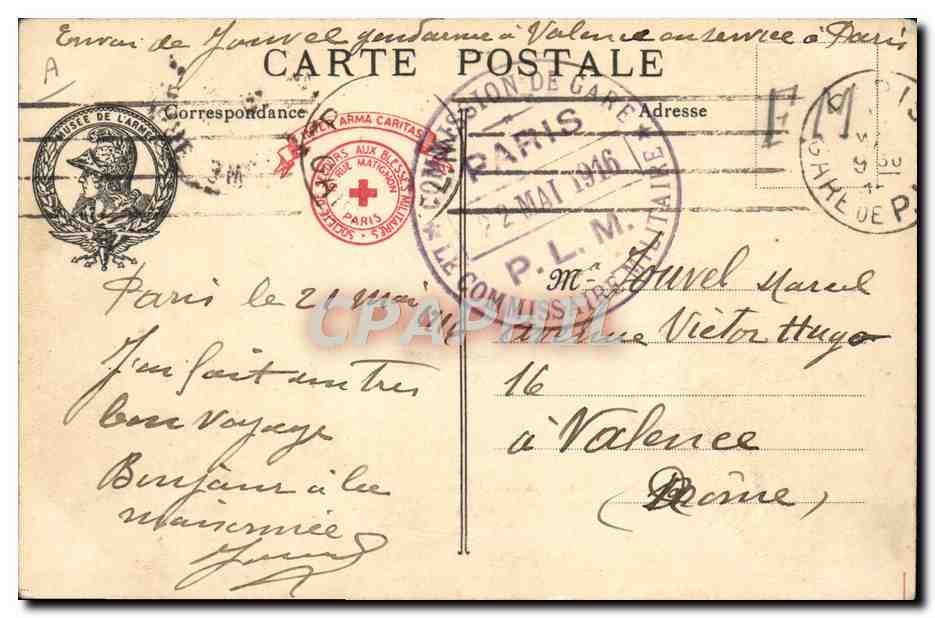 Envoi de Jouvel gendarme à Valence en service à Paris
CARTE POSTALE
A
Correspondance
Adresse
F M
MUSÉE DE L'ARMÉE
INTER ARMA CARITAS
SOCIÉTÉ SECOURS AUX BLESSÉS MILITAIRES
RUE MATIGNON
PARIS
COMMISSION DE GARE
PARIS
22 MAI 1916
P. L. M.
LE COMMISSAIRE MILITAIRE
GARE DE P
Paris le 21 mai 1916
J'ai fait un tres
bon voyage
Bonjour à la
maisonnée
Jouvel
Mr Jouvel Marcel
Avenue Victor Hugo
16
à Valence
(Drôme)
CPAPHIL